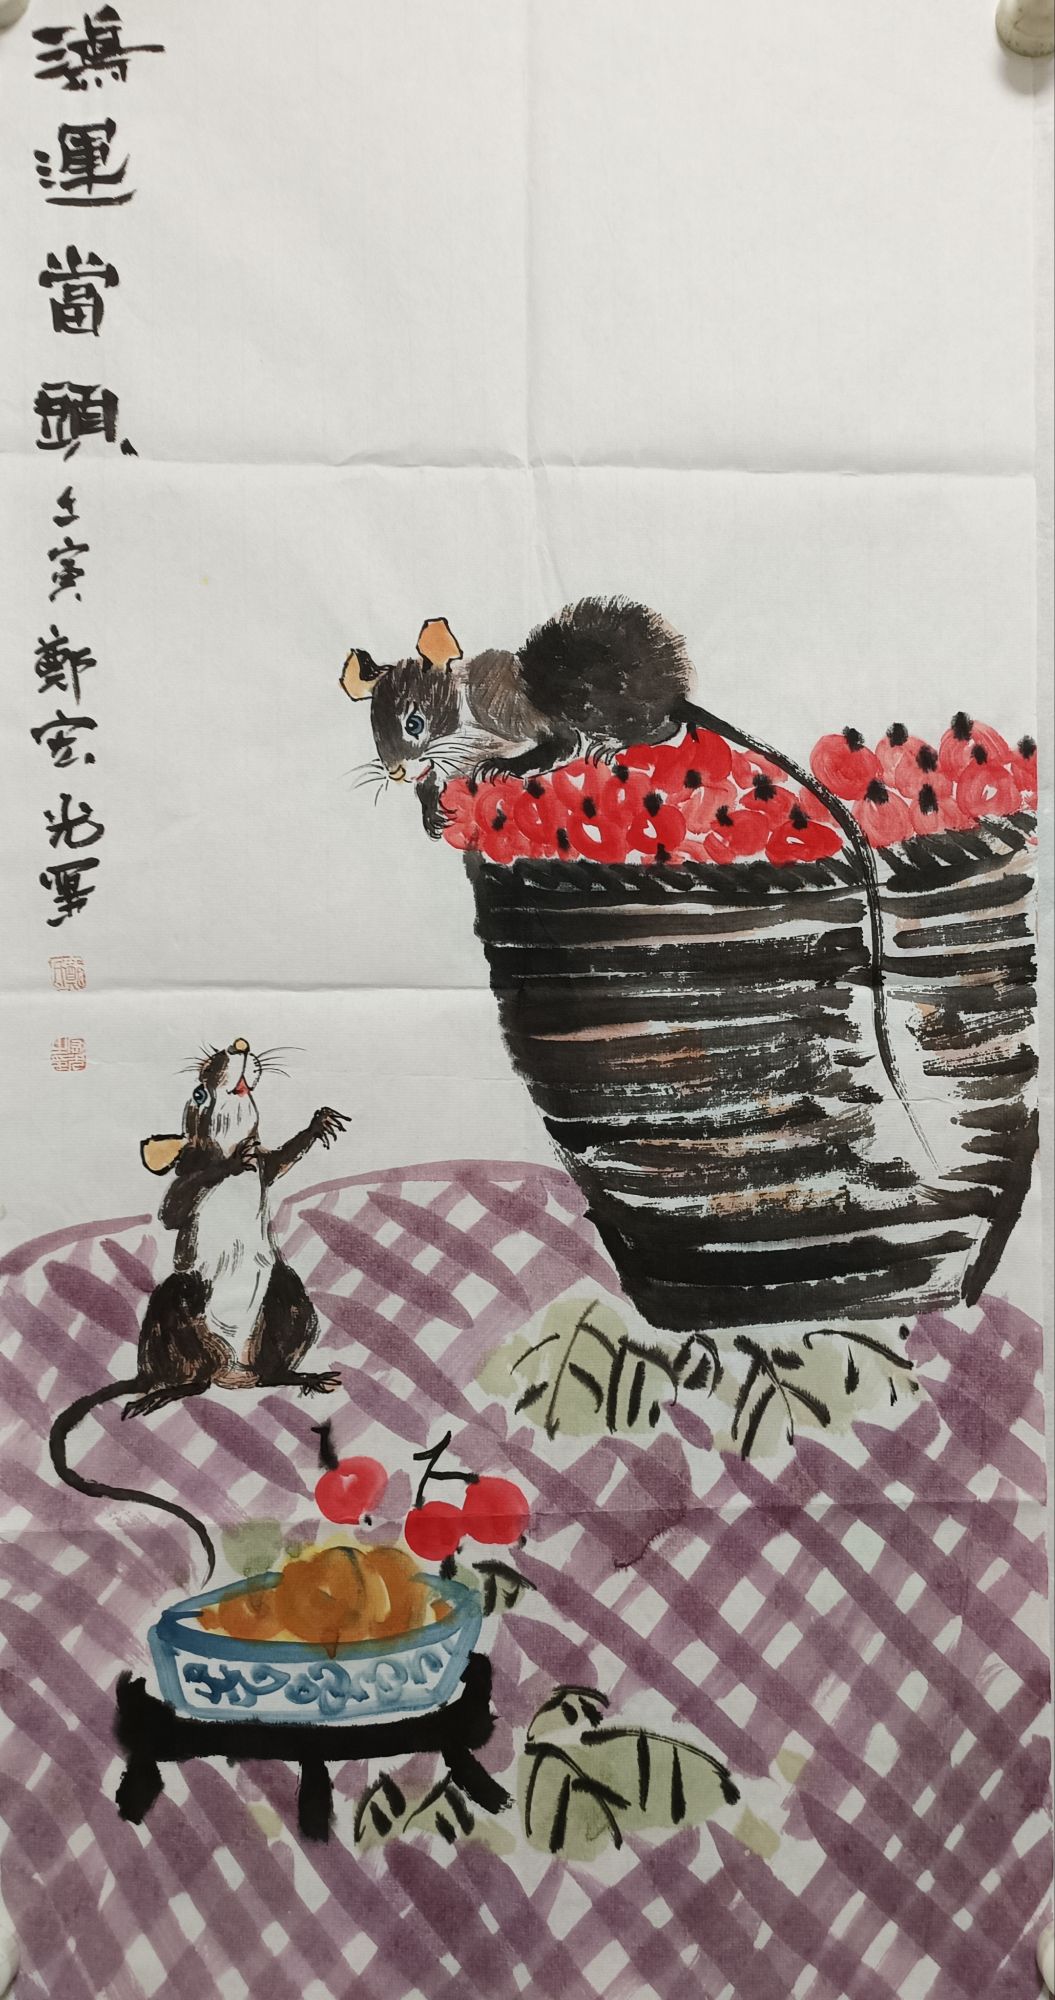 鴻運當頭壬寅鄭宏光畫